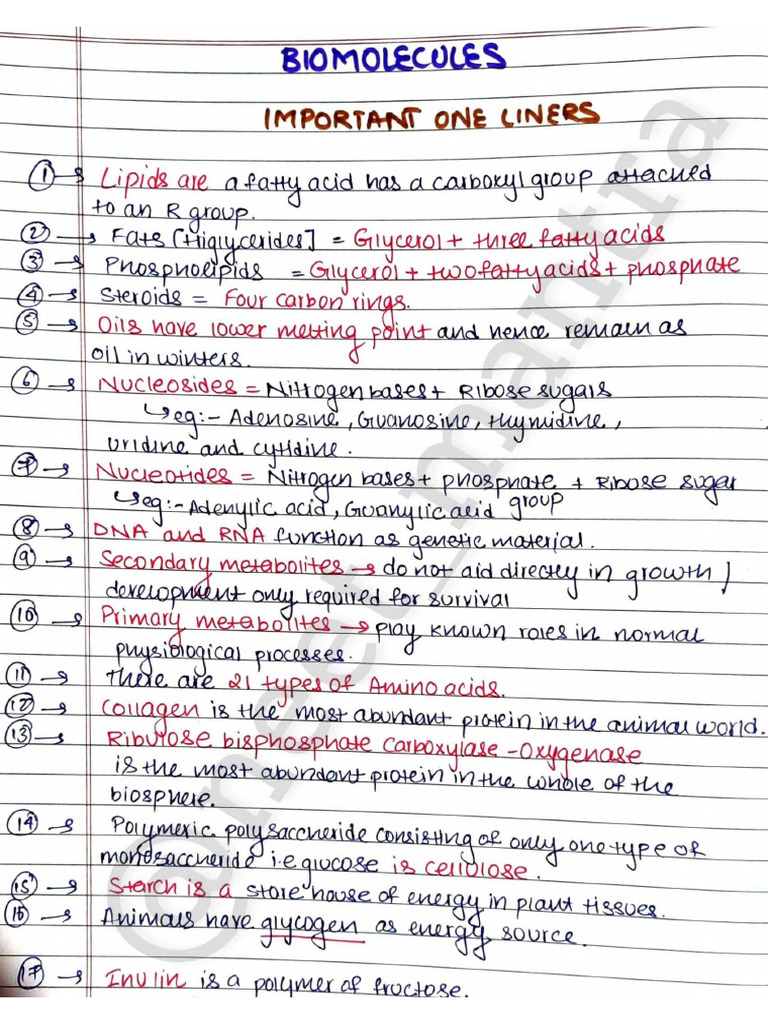 BIOMOLECULES
IMPORTANT ONE LINERS
① → Lipids are a fatty acid has a carboxyl group attached
to an R group.
② → Fats [triglycerides] = Glycerol + three fatty acids
③ → Phospholipids = Glycerol + two fatty acids + phosphate
④ → Steroids = Four carbon rings.
⑤ → Oils have lower melting point and hence remain as
oil in winters.
⑥ → Nucleosides = Nitrogen bases + Ribose sugars
↳ eg:- Adenosine, Guanosine, thymidine,
uridine and cytidine.
⑦ → Nucleotides = Nitrogen bases + phosphate + Ribose sugar
↳ eg:- Adenylic acid, Guanylic acid group
⑧ → DNA and RNA function as genetic material.
⑨ → Secondary metabolites → do not aid directly in growth /
development only required for survival
⑩ → Primary metabolites → play known roles in normal
physiological processes.
⑪ → there are 21 types of Amino acids.
⑫ → Collagen is the most abundant protein in the animal world.
⑬ → Ribulose bisphosphate carboxylase - Oxygenase
is the most abundant protein in the whole of the
biosphere.
⑭ → Polymeric polysaccheride consisting of only one type of
monosaccheride i.e glucose is cellulose.
⑮ → Starch is a store house of energy in plant tissues.
⑯ → Animals have glycogen as energy source.
⑰ → Inulin is a polymer of fructose.
@neet_mantra